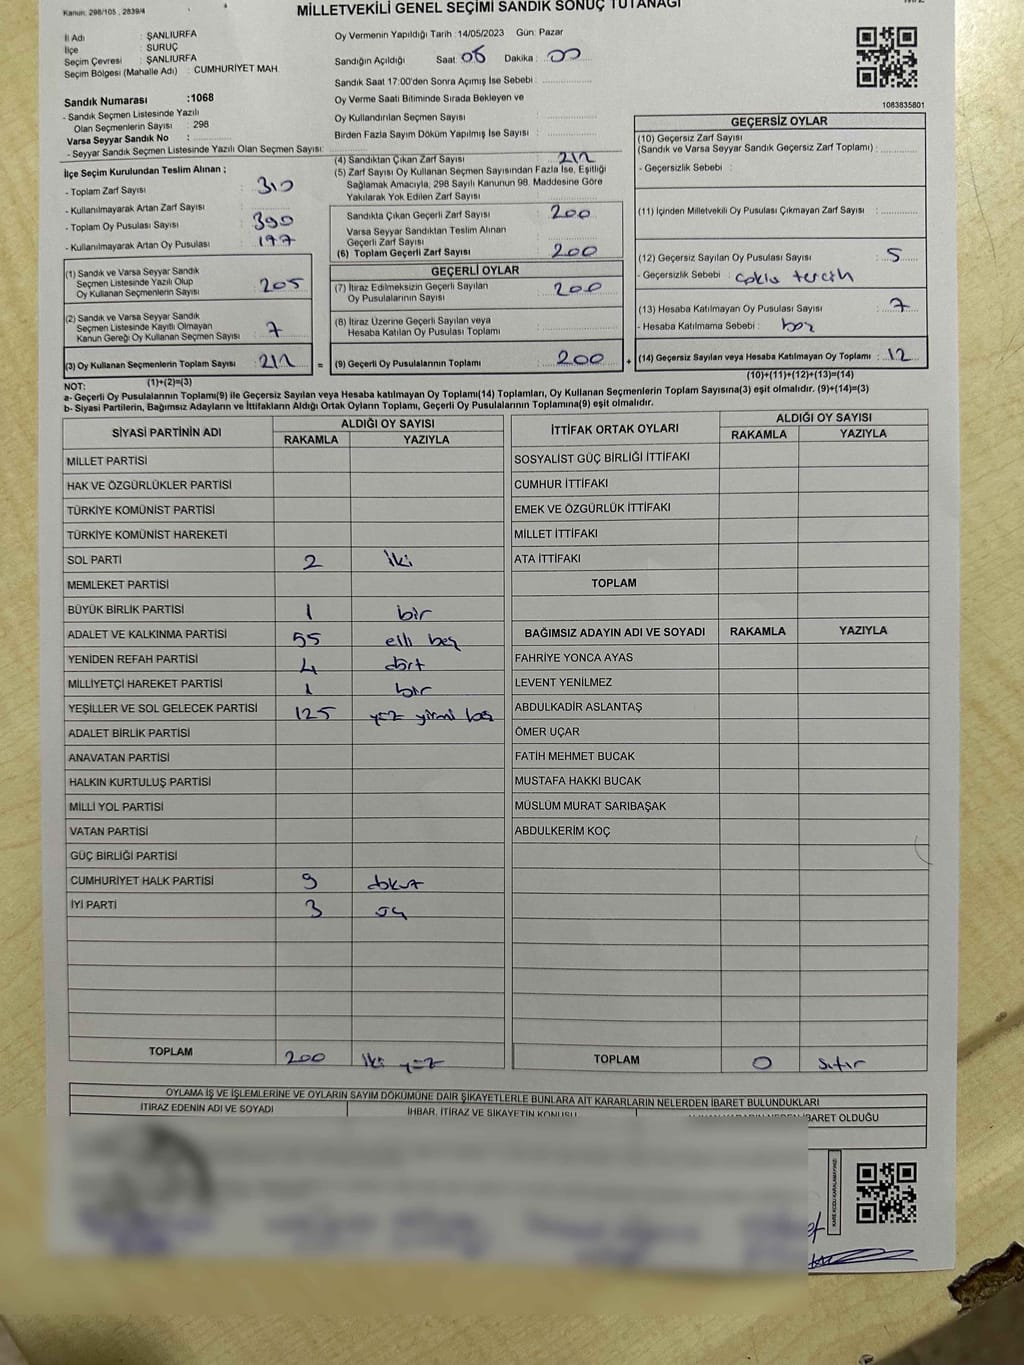 Kanun: 298/105 , 2839/4
MİLLETVEKİLİ GENEL SEÇİMİ SANDIK SONUÇ TUTANAĞI
İl Adı : ŞANLIURFA
İlçe : SURUÇ
Seçim Çevresi : ŞANLIURFA
Seçim Bölgesi (Mahalle Adı) : CUMHURİYET MAH
Sandık Numarası :1068
- Sandık Seçmen Listesinde Yazılı
Olan Seçmenlerin Sayısı : 298
Varsa Seyyar Sandık No :
- Seyyar Sandık Seçmen Listesinde Yazılı Olan Seçmen Sayısı:
Oy Vermenin Yapıldığı Tarih :14/05/2023 Gün: Pazar
Sandığın Açıldığı Saat: 08 Dakika : 00
Sandık Saat 17:00'den Sonra Açımış İse Sebebi :
Oy Verme Saati Bitiminde Sırada Bekleyen ve
Oy Kullandırılan Seçmen Sayısı :
Birden Fazla Sayım Döküm Yapılmış İse Sayısı :
1083835801
İlçe Seçim Kurulundan Teslim Alınan ;
- Toplam Zarf Sayısı : 310
- Kullanılmayarak Artan Zarf Sayısı :
- Toplam Oy Pusulası Sayısı : 390
- Kullanılmayarak Artan Oy Pusulası : 177
(1) Sandık ve Varsa Seyyar Sandık
Seçmen Listesinde Yazılı Olup
Oy Kullanan Seçmenlerin Sayısı : 205
(2) Sandık ve Varsa Seyyar Sandık
Seçmen Listesinde Kayıtlı Olmayan
Kanun Gereği Oy Kullanan Seçmen Sayısı : 7
(3) Oy Kullanan Seçmenlerin Toplam Sayısı : 212 =
(4) Sandıktan Çıkan Zarf Sayısı : 212
(5) Zarf Sayısı Oy Kullanan Seçmen Sayısından Fazla İse, Eşitliği
Sağlamak Amacıyla, 298 Sayılı Kanunun 98. Maddesine Göre
Yakılarak Yok Edilen Zarf Sayısı :
Sandıkta Çıkan Geçerli Zarf Sayısı : 200
Varsa Seyyar Sandıktan Teslim Alınan
Geçerli Zarf Sayısı :
(6) Toplam Geçerli Zarf Sayısı : 200
GEÇERLİ OYLAR
(7) İtiraz Edilmeksizin Geçerli Sayılan
Oy Pusulalarının Sayısı : 200
(8) İtiraz Üzerine Geçerli Sayılan veya
Hesaba Katılan Oy Pusulası Toplamı :
(9) Geçerli Oy Pusulalarının Toplamı : 200 +
GEÇERSİZ OYLAR
(10) Geçersiz Zarf Sayısı
(Sandık ve Varsa Seyyar Sandık Geçersiz Zarf Toplamı) :
- Geçersizlik Sebebi :
(11) İçinden Milletvekili Oy Pusulası Çıkmayan Zarf Sayısı :
(12) Geçersiz Sayılan Oy Pusulası Sayısı : 5
- Geçersizlik Sebebi : çoklu tercih
(13) Hesaba Katılmayan Oy Pusulası Sayısı : 7
- Hesaba Katılmama Sebebi : boş
(14) Geçersiz Sayılan veya Hesaba Katılmayan Oy Toplamı : 12
NOT: (1)+(2)=(3)
(10)+(11)+(12)+(13)=(14)
a- Geçerli Oy Pusulalarının Toplamı(9) ile Geçersiz Sayılan veya Hesaba katılmayan Oy Toplamı(14) Toplamları, Oy Kullanan Seçmenlerin Toplam Sayısına(3) eşit olmalıdır. (9)+(14)=(3)
b- Siyasi Partilerin, Bağımsız Adayların ve İttifakların Aldığı Ortak Oyların Toplamı, Geçerli Oy Pusulalarının Toplamına(9) eşit olmalıdır.
SİYASİ PARTİNİN ADI ALDIĞI OY SAYISI
RAKAMLA YAZIYLA
MİLLET PARTİSİ
HAK VE ÖZGÜRLÜKLER PARTİSİ
TÜRKİYE KOMÜNİST PARTİSİ
TÜRKİYE KOMÜNİST HAREKETİ
SOL PARTİ 2 iki
MEMLEKET PARTİSİ
BÜYÜK BİRLİK PARTİSİ 1 bir
ADALET VE KALKINMA PARTİSİ 55 elli beş
YENİDEN REFAH PARTİSİ 4 dört
MİLLİYETÇİ HAREKET PARTİSİ 1 bir
YEŞİLLER VE SOL GELECEK PARTİSİ 125 yüz yirmi beş
ADALET BİRLİK PARTİSİ
ANAVATAN PARTİSİ
HALKIN KURTULUŞ PARTİSİ
MİLLİ YOL PARTİSİ
VATAN PARTİSİ
GÜÇ BİRLİĞİ PARTİSİ
CUMHURİYET HALK PARTİSİ 9 dokuz
İYİ PARTİ 3 üç
TOPLAM 200 iki yüz
İTTİFAK ORTAK OYLARI ALDIĞI OY SAYISI
RAKAMLA YAZIYLA
SOSYALİST GÜÇ BİRLİĞİ İTTİFAKI
CUMHUR İTTİFAKI
EMEK VE ÖZGÜRLÜK İTTİFAKI
MİLLET İTTİFAKI
ATA İTTİFAKI
TOPLAM
BAĞIMSIZ ADAYIN ADI VE SOYADI RAKAMLA YAZIYLA
FAHRİYE YONCA AYAS
LEVENT YENİLMEZ
ABDULKADİR ASLANTAŞ
ÖMER UÇAR
FATİH MEHMET BUCAK
MUSTAFA HAKKI BUCAK
MÜSLÜM MURAT SARIBAŞAK
ABDULKERİM KOÇ
TOPLAM 0 sıfır
OYLAMA İŞ VE İŞLEMLERİNE VE OYLARIN SAYIM DÖKÜMÜNE DAİR ŞİKAYETLERLE BUNLARA AİT KARARLARIN NELERDEN İBARET BULUNDUKLARI
İTİRAZ EDENİN ADI VE SOYADI
İHBAR, İTİRAZ VE ŞİKAYETİN KONUSU
İBARET OLDUĞU